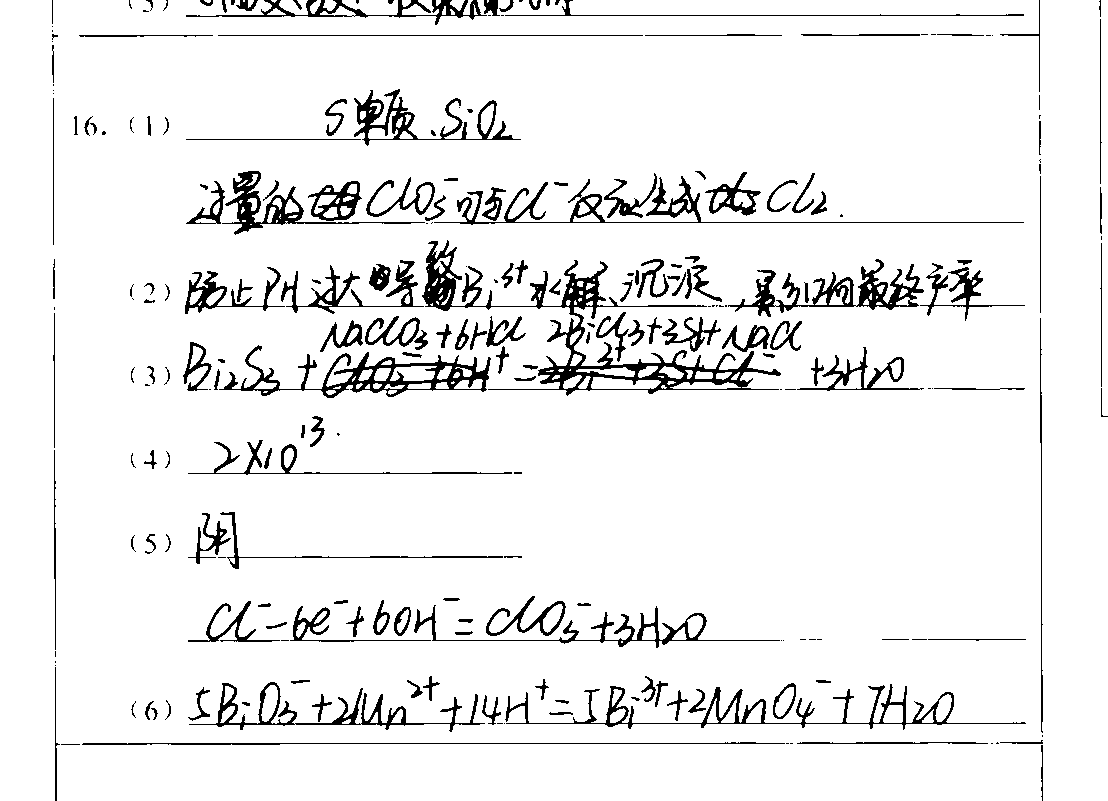 (5)
16. (1) S单质、SiO₂
过量的ClO₃⁻可与Cl⁻反应生成Cl₂.
(2) 防止PH过大导致Bi³⁺水解、沉淀,影响最终产率
NaClO₃+6HCl 2BiCl₃+3S+NaCl
(3) Bi₂S₃+ClO₃⁻+6H⁺=2Bi³⁺+3S+Cl⁻ +3H₂O
(4) 2×10¹³.
(5) 阴
Cl⁻-6e⁻+6OH⁻=ClO₃⁻+3H₂O
(6) 5BiO₃⁻+2Mn²⁺+14H⁺=5Bi³⁺+2MnO₄⁻+7H₂O